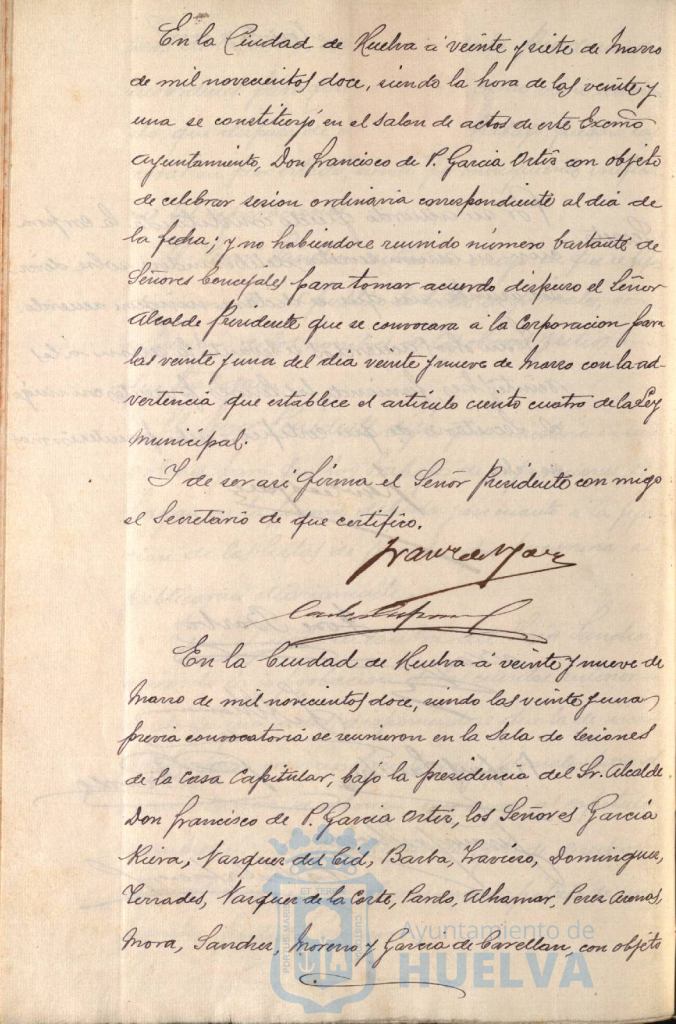 En la Ciudad de Huelva á veinte y siete de Marzo
de mil novecientos doce, siendo la hora de las veinte y
una se constituyó en el salon de actos de este Excmo
Ayuntamiento, Don Francisco de P. Garcia Ortiz con objeto
de celebrar sesion ordinaria correspondiente al dia de
la fecha; y no habiendose reunido número bastante de
Señores Concejales para tomar acuerdo dispuso el Señor
Alcalde Presidente que se convocara á la Corporacion para
las veinte y una del dia veinte y nueve de Marzo con la ad-
vertencia que establece el artículo ciento cuatro de la Ley
Municipal.
Y de ser asi firma el Señor Presidente con migo
el Secretario de que certifico.
En la Ciudad de Huelva á veinte y nueve de
Marzo de mil novecientos doce, siendo las veinte y una
previa convocatoria se reunieron en la Sala de Sesiones
de la Casa Capitular, bajo la presidencia del Sr. Alcalde
Don Francisco de P. Garcia Ortiz, los Señores Garcia
Riera, Vazquez del Cid, Barba, Traviezo, Dominguez,
Terrades, Vazquez de la Corte, Pardo, Alhamar, Perez Arenas,
Mora, Sanchez, Moreno y Garcia de Cavellan, con objeto
Ayuntamiento de
HUELVA